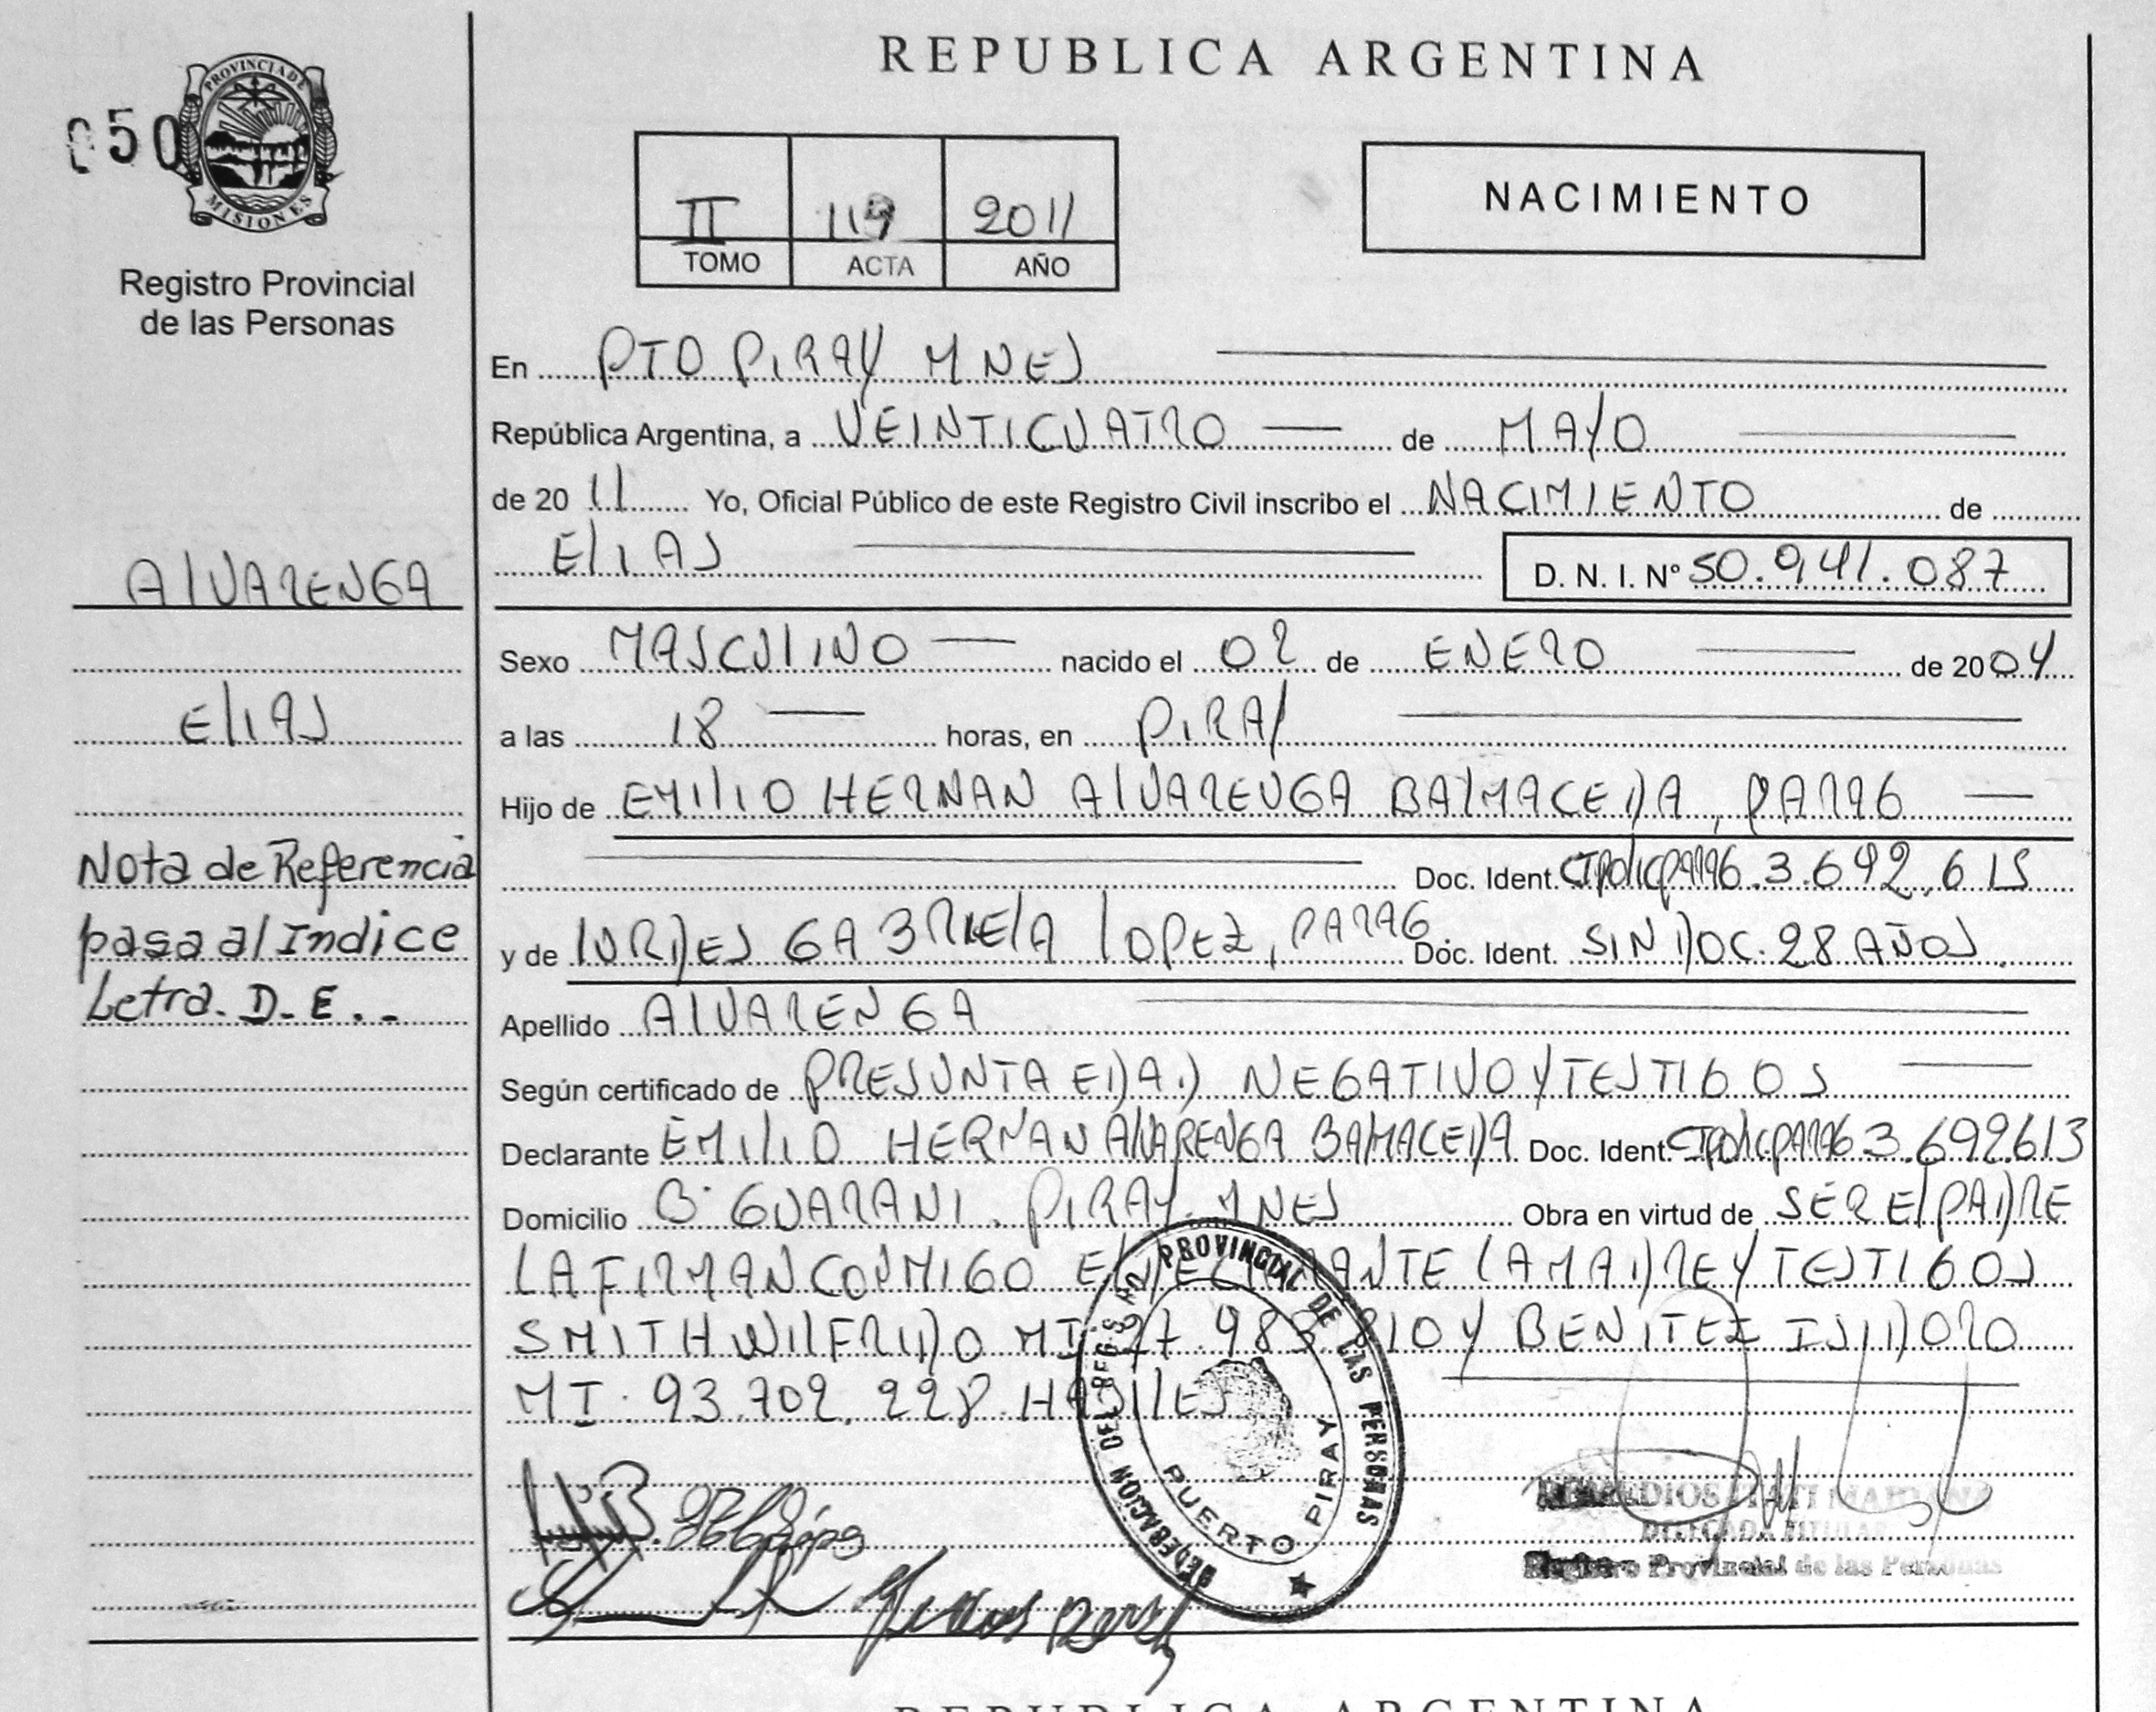 REPUBLICA ARGENTINA
050
PROVINCIA DE
MISIONES
Registro Provincial
de las Personas
II 119 2011
TOMO ACTA AÑO
NACIMIENTO
En PTO PIRAY MNES
República Argentina, a VEINTICUATRO de MAYO
de 20 11 Yo, Oficial Público de este Registro Civil inscribo el NACIMIENTO de
ElIAS D. N. I. Nº 50.941.087
AlVARENGA
Sexo MASCUlINO nacido el 02 de ENERO de 2004
ElIAS
a las 18 horas, en PIRAY
Hijo de EMIlIO HERNAN AlVARENGA BAlMACEDA, PARAG
Nota de Referencia
pasa al Indice
Letra. D. E. .-
Doc. Ident. PARAG.3.692.613
y de lURDES GABRIElA lOPEZ, PARAG. Doc. Ident. SIN DOC. 28 AÑOS.
Apellido AlVARENGA
Según certificado de PRESUNTA EDAD NEGATIVO Y TESTIGOS
Declarante EMIlIO HERNAN AlVARENGA BAlMACEDA Doc. Ident. PARAG 3.692.613
Domicilio Bº GUARANI. PIRAY. MNES Obra en virtud de SER El PADRE
LA FIRMAN CONMIGO El DEClARANTE lA MADRE Y TESTIGOS
SMITH WIlFRIDO MI 27.983.810 Y BENITEZ ISIDORO
MI. 93.702.228 HABIlES
DELEGACION DEL REGISTRO PROVINCIAL DE LAS PERSONAS
PUERTO PIRAY
DELEGADA TITULAR
Registro Provincial de las Personas
REPUBLICA ARGENTINA